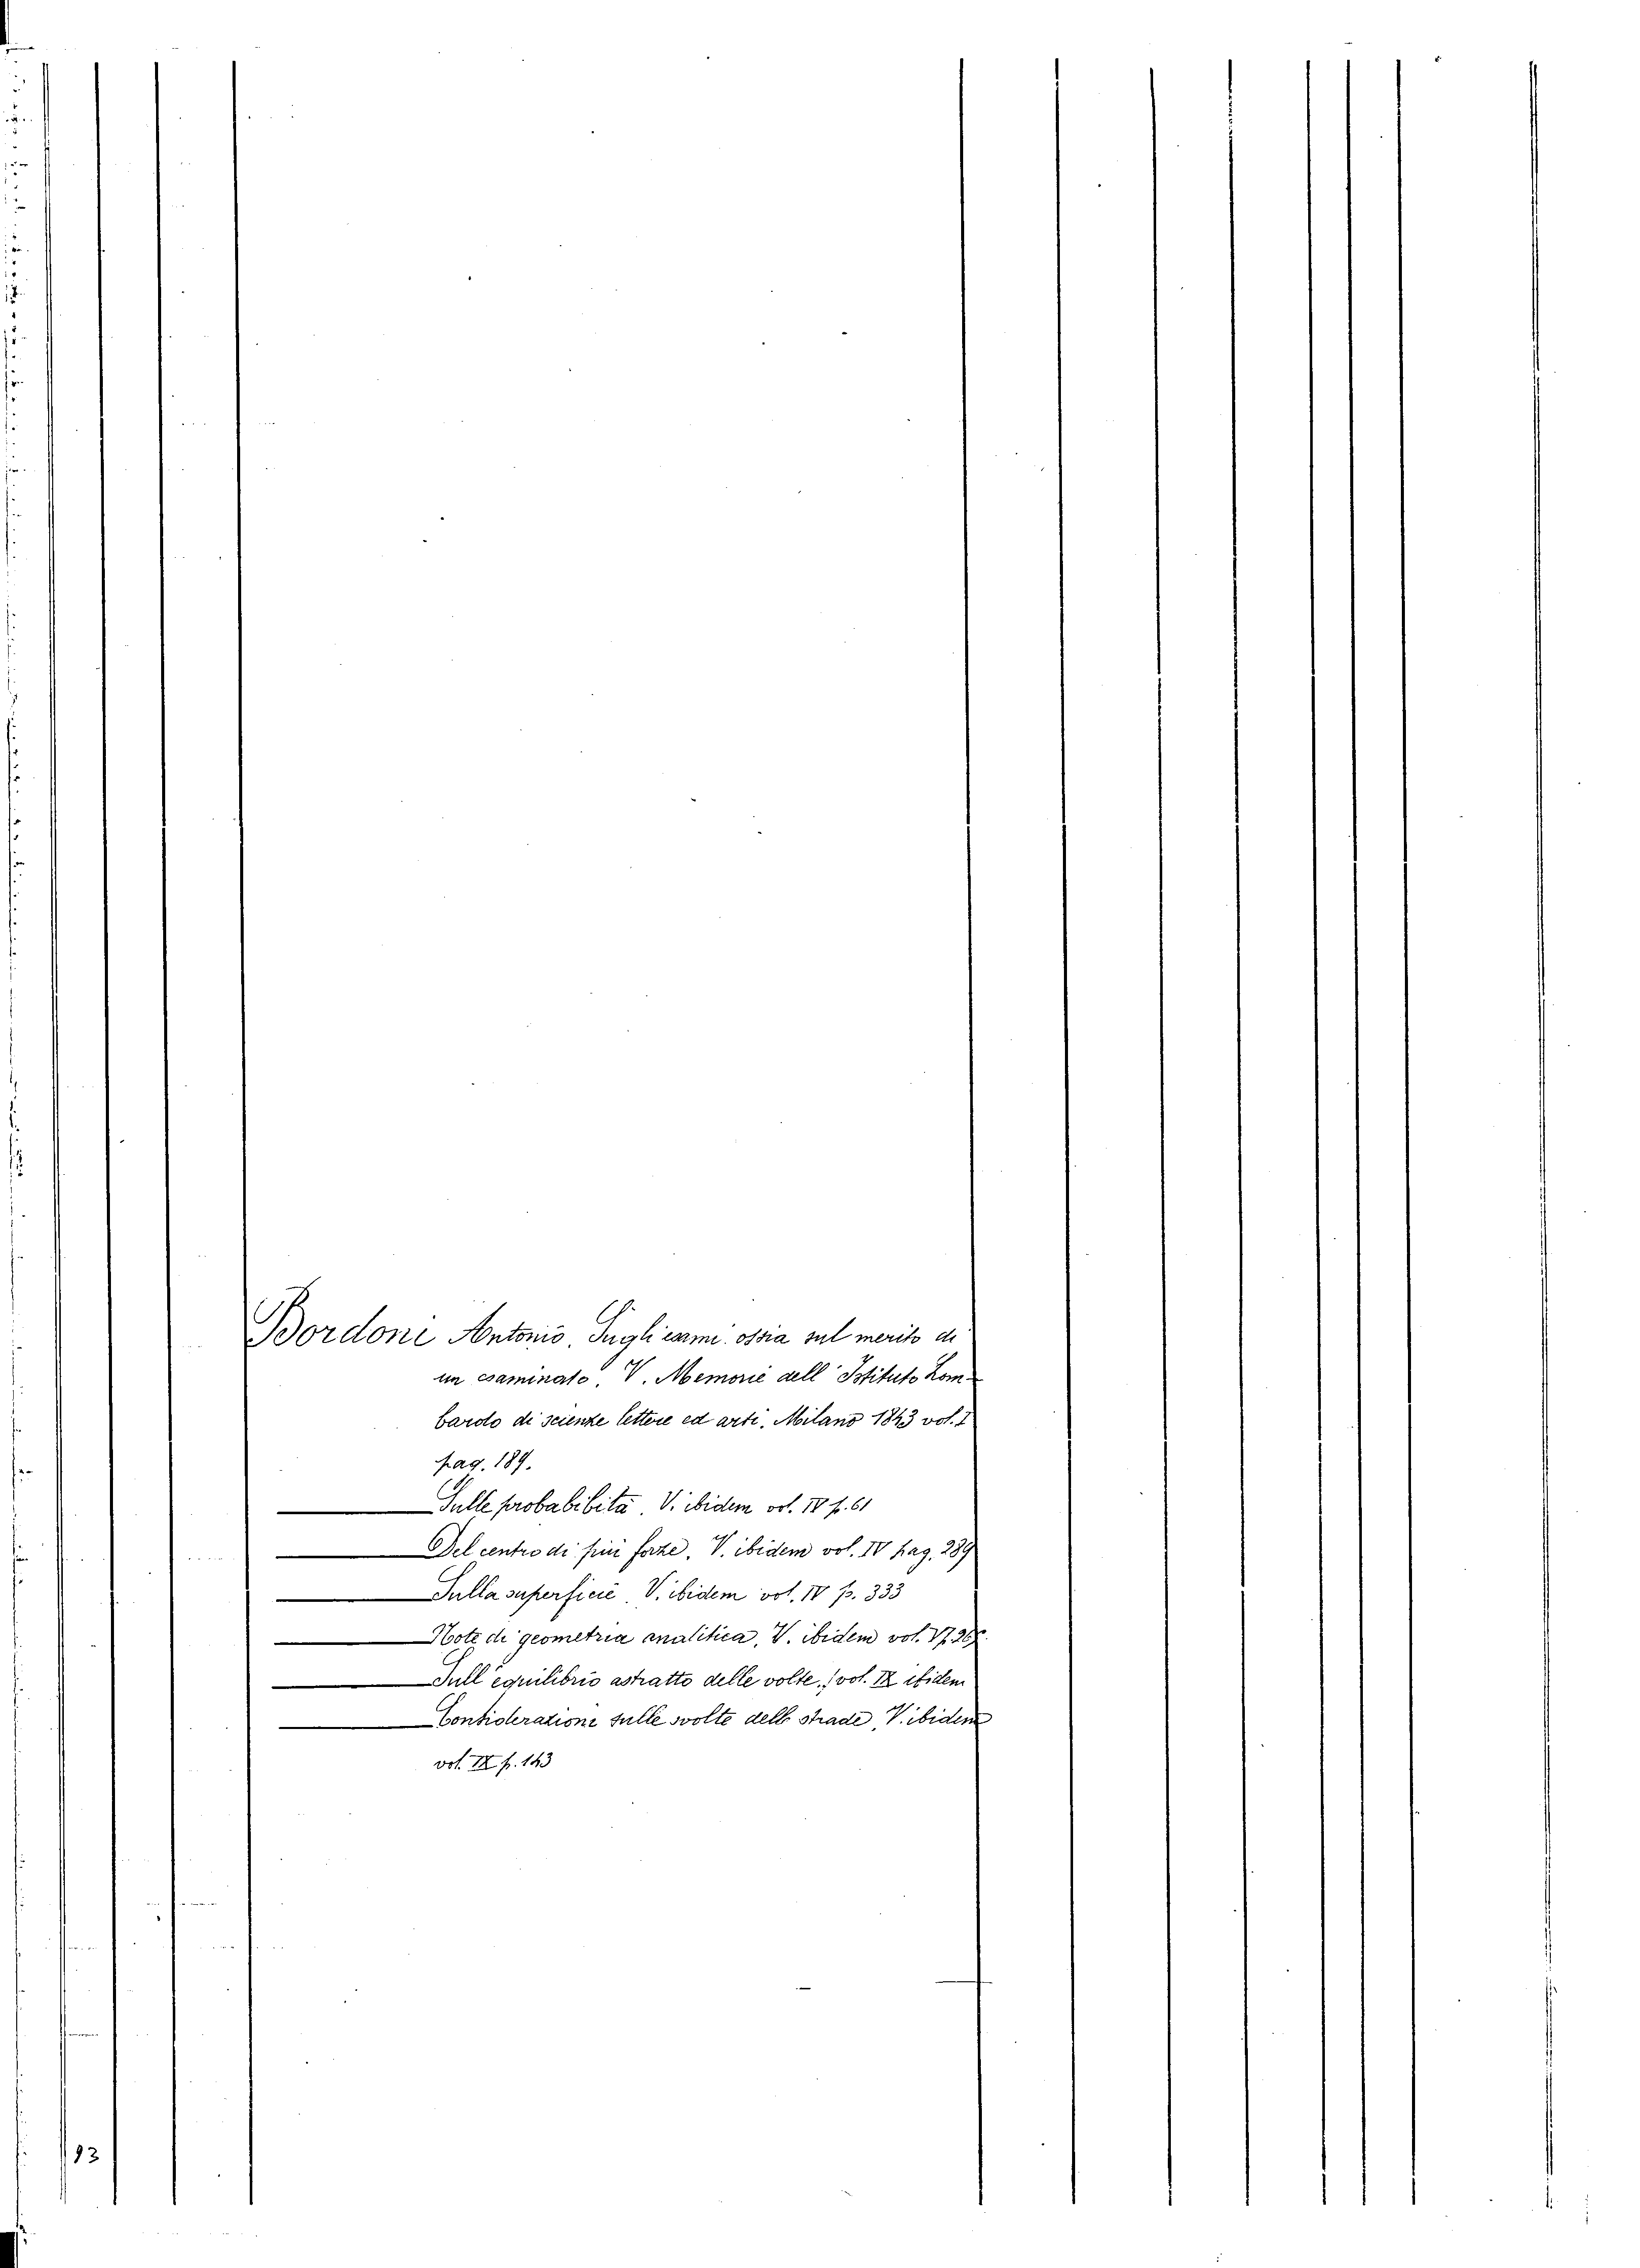 Bordoni Antonio. Sugli esami ossia sul merito di
un esaminato. V. Memorie dell' Istituto Lom-
bardo di scienze lettere ed arti. Milano 1843 vol. I
pag. 189.
Sulle probabilità. V. ibidem vol. IV p. 61
Del centro di più forze. V. ibidem vol. IV pag. 289
Sulla superficie. V. ibidem vol. IV p. 333
Note di geometria analitica, V. ibidem vol.
Sull' equilibrio astratto delle volte, vol. IX ibidem
Considerazioni sulle svolte delle strade, V. ibidem
vol. IX p. 143